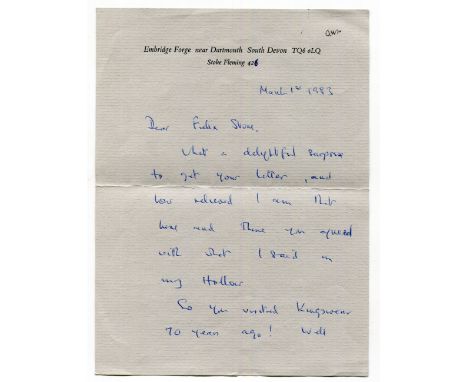 Embridge Forge near Dartmouth South Devon TQ6 0LQ
Stoke Fleming 426
March 1st 1983
Dear Felix Stone,
What a delightful surprise
to get your letter, and
how relieved I am that
here and there you agreed
with what I said in
my Hollow
So you visited Kingswear
70 years ago! Well